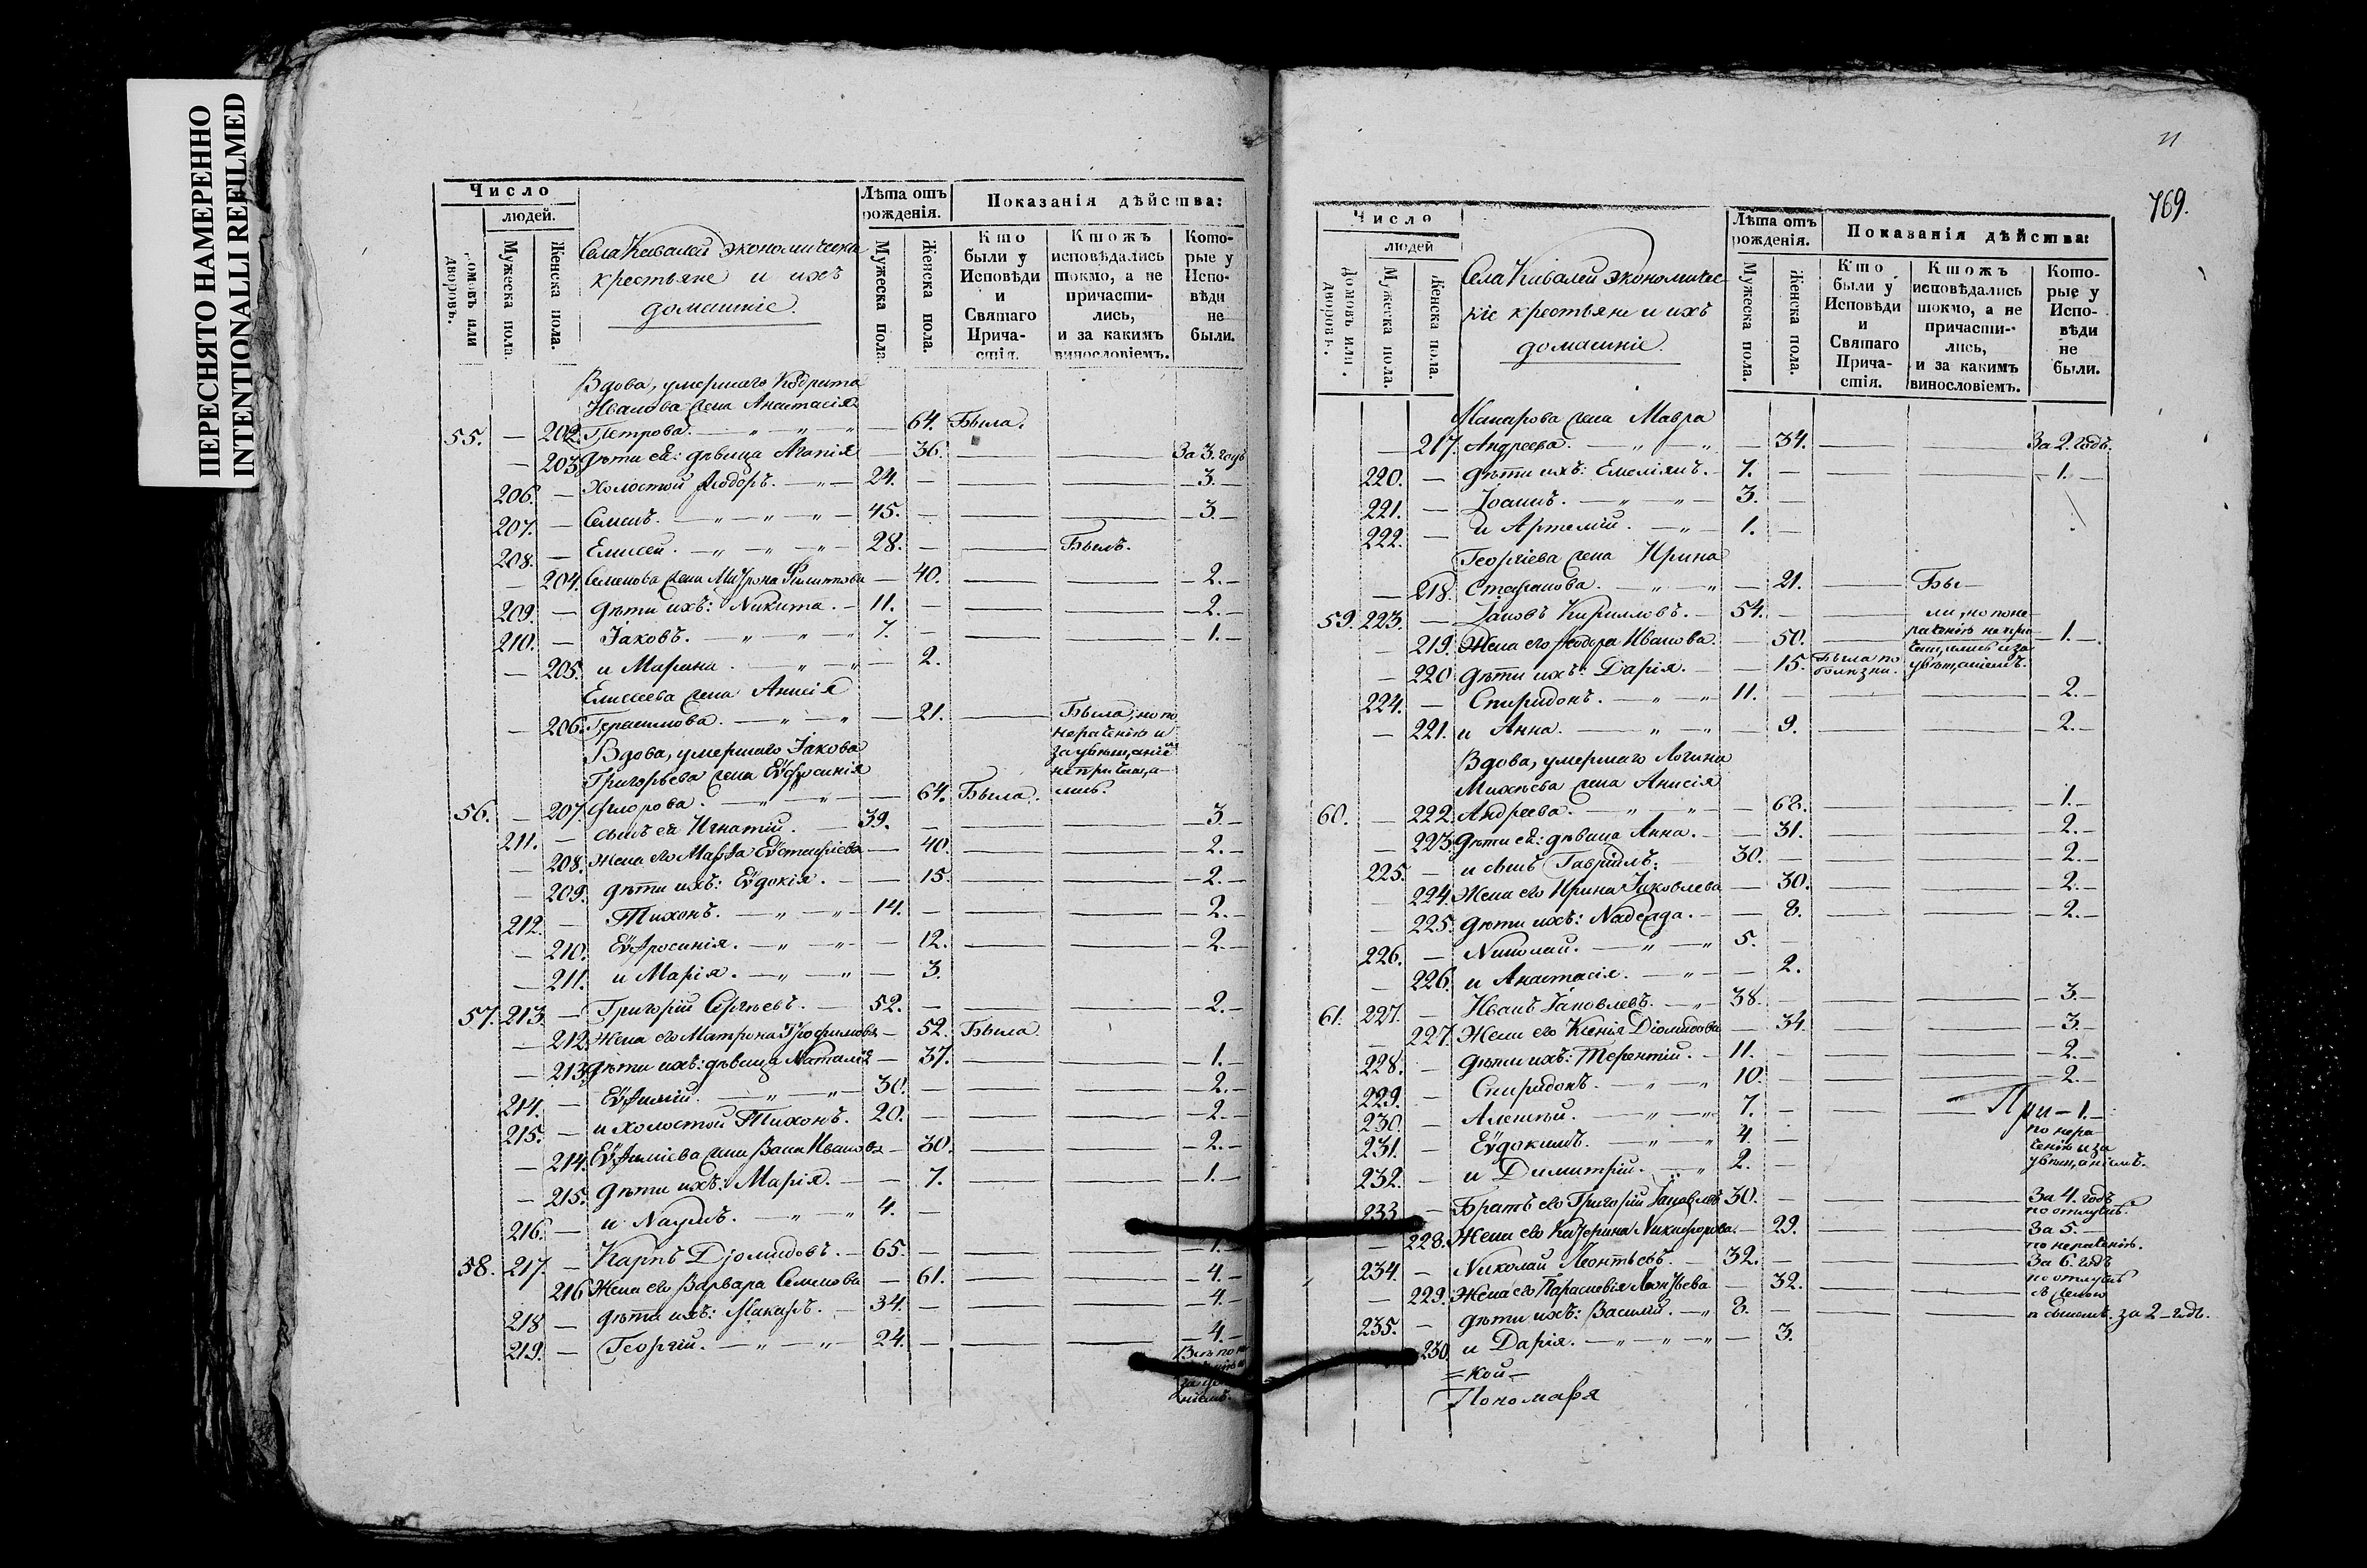 ПЕРЕСНЯТО НАМЕРЕННО
INTENTIONALLI REFILMED
Число
людей.
домовъ или дворовъ.
Мужеска пола.
Женска пола.
Села Кивалей экономическіе
крестьяне и ихъ
домашніе.
Лѣта отъ рожденія.
Мужеска пола.
Женска пола.
Показанія дѣйства:
Кто были у Исповѣди и Святаго Причастія.
Ктожъ исповѣдались токмо, а не причастились, и за какимъ винословіемъ.
Которые у Исповѣди не были.
Вдова, умершаго Кодрата
Иванова жена Анастасія
55. — 202. Петрова. — 64. Была.
— 203. Дѣти её: дѣвица Агапія — 36. За 3. года
206. — Холостой Ѳеодоръ. — 24. — 3. —
207. — Семенъ. — 45. — 3. —
208. — Елисей. — 28. — Былъ.
— 204. Семенова жена Матрона Филиппова — 40. — 2. —
209. — дѣти ихъ: Никита. — 11. — 2. —
210. — Іаковъ. — 7. — 1. —
— 205. и Марина. — 2.
Елисеева жена Анисія
— 206. Герасимова. — 21. — Была, но по
нераченію и
за увѣщаніемъ
не причаща-
лись.
Вдова, умершаго Іакова
Григорьева жена Еѵфросинія
56. — 207. Флорова. — 64. Была.
211. — сынъ её Игнатій. — 39. — 3. —
— 208. Жена его Марѳа Еѵстафіева — 40. — 2. —
— 209. дѣти ихъ: Еѵдокія. — 15. — 2. —
212. — Тихонъ. — 14. — 2. —
— 210. Еѵфросинія. — 12. — 2. —
— 211. и Марія. — 3.
57. 213. — Григорій Сергѣевъ. — 52. — 2. —
— 212. Жена его Матрона Трофимова — 52. Была
— 213. Дѣти ихъ: дѣвица Наталія — 37. — 1. —
214. — Еѵѳимій. — 30. — 2. —
215. — и холостой Тихонъ. 20. — 2. —
— 214. Еѵѳиміева жена Васса Иванова — 30. — 2. —
— 215. дѣти ихъ: Марія. — 7. — 1. —
216. — и Наумъ. — 4. —
58. 217. — Карпъ Діомидовъ. — 65. — 1. —
216 Жена его Варвара Семенова — 61. — 4. —
218 — дѣти ихъ: Макаръ. — 34. — 4. —
219. — Георгій. — 24. — 4. —
769.
Число
людей
Домовъ или дворовъ.
Мужеска пола.
Женска пола.
Села Кивалей экономичес
кіе крестьяне и ихъ
домашніе.
Лѣта отъ рожденія.
Мужеска пола.
Женска пола.
Показанія дѣйства:
Кто были у Исповѣди и Святаго Причастія.
Ктожъ исповѣдались токмо, а не причастились, и за какимъ винословіемъ.
Которые у Исповѣди не были.
Макарова жена Мавра
— 217. Андреева. — 34. — За 2. годъ.
220. — дѣти ихъ: Емеліянъ. — 7. — 1. —
221. — Іоаннъ. — 3. —
222. — и Артемій. — 1. —
Георгіева жена Ирина
— 218. Стефанова. — 21. — Бы-
59. 223. — Іаковъ Кирилловъ. — 54. — ли, но поне
— 219. Жена его Ѳеодора Иванова. — 50. — раченію не при — 1. —
— 220. дѣти ихъ: Дарія. — 15. Была по
болѣзни.
увѣщаніемъ.
224. — Спиридонъ. — 11. — 2. —
— 221. и Анна. — 9. — 2. —
Вдова, умершаго Логина
Михѣева жена Анисія
60. — 222. Андреева. — 68. — 1. —
— 223. Дѣти её: дѣвица Анна. — 31. — 2. —
225. — и сынъ Гавріилъ. 30. — 2. —
— 224. Жена его Ирина Іаковлева — 30. — 2. —
— 225. дѣти ихъ: Надежда. — 8. — 2. —
226. — Николай. — 5. —
— 226. и Анастасія. — 2.
61. 227. — Иванъ Іаковлевъ. — 38. — 3. —
— 227. Жена его Ксенія Діомидова — 34. — 3. —
228. — дѣти ихъ: Терентій. — 11. — 2. —
229. — Спиридонъ. — 10. — 2. —
230 — Алексѣй. — 7. — 1. —
231. — Еѵдокимъ. — 4. — по нера
ченію и за
увѣщаніемъ.
232. — и Димитрій. — 2. —
233 — Братъ его Григорій Іаковлевъ 30. — За 4. годъ
по отлучкѣ.
— 228. Жена его Катерина Никифорова. — 29. — За 5. —
по нераченію.
234. — Николай Леонтьевъ. 32. — За 6. годъ
по отлучкѣ
— 229. Жена его Параскевія Леонтьева — 32. — съ женою
235. — дѣти ихъ: Василій. — 8. — и сыномъ. за 2 — годъ.
230. и Дарія. — 3.
= кой —
Пономаря
При —